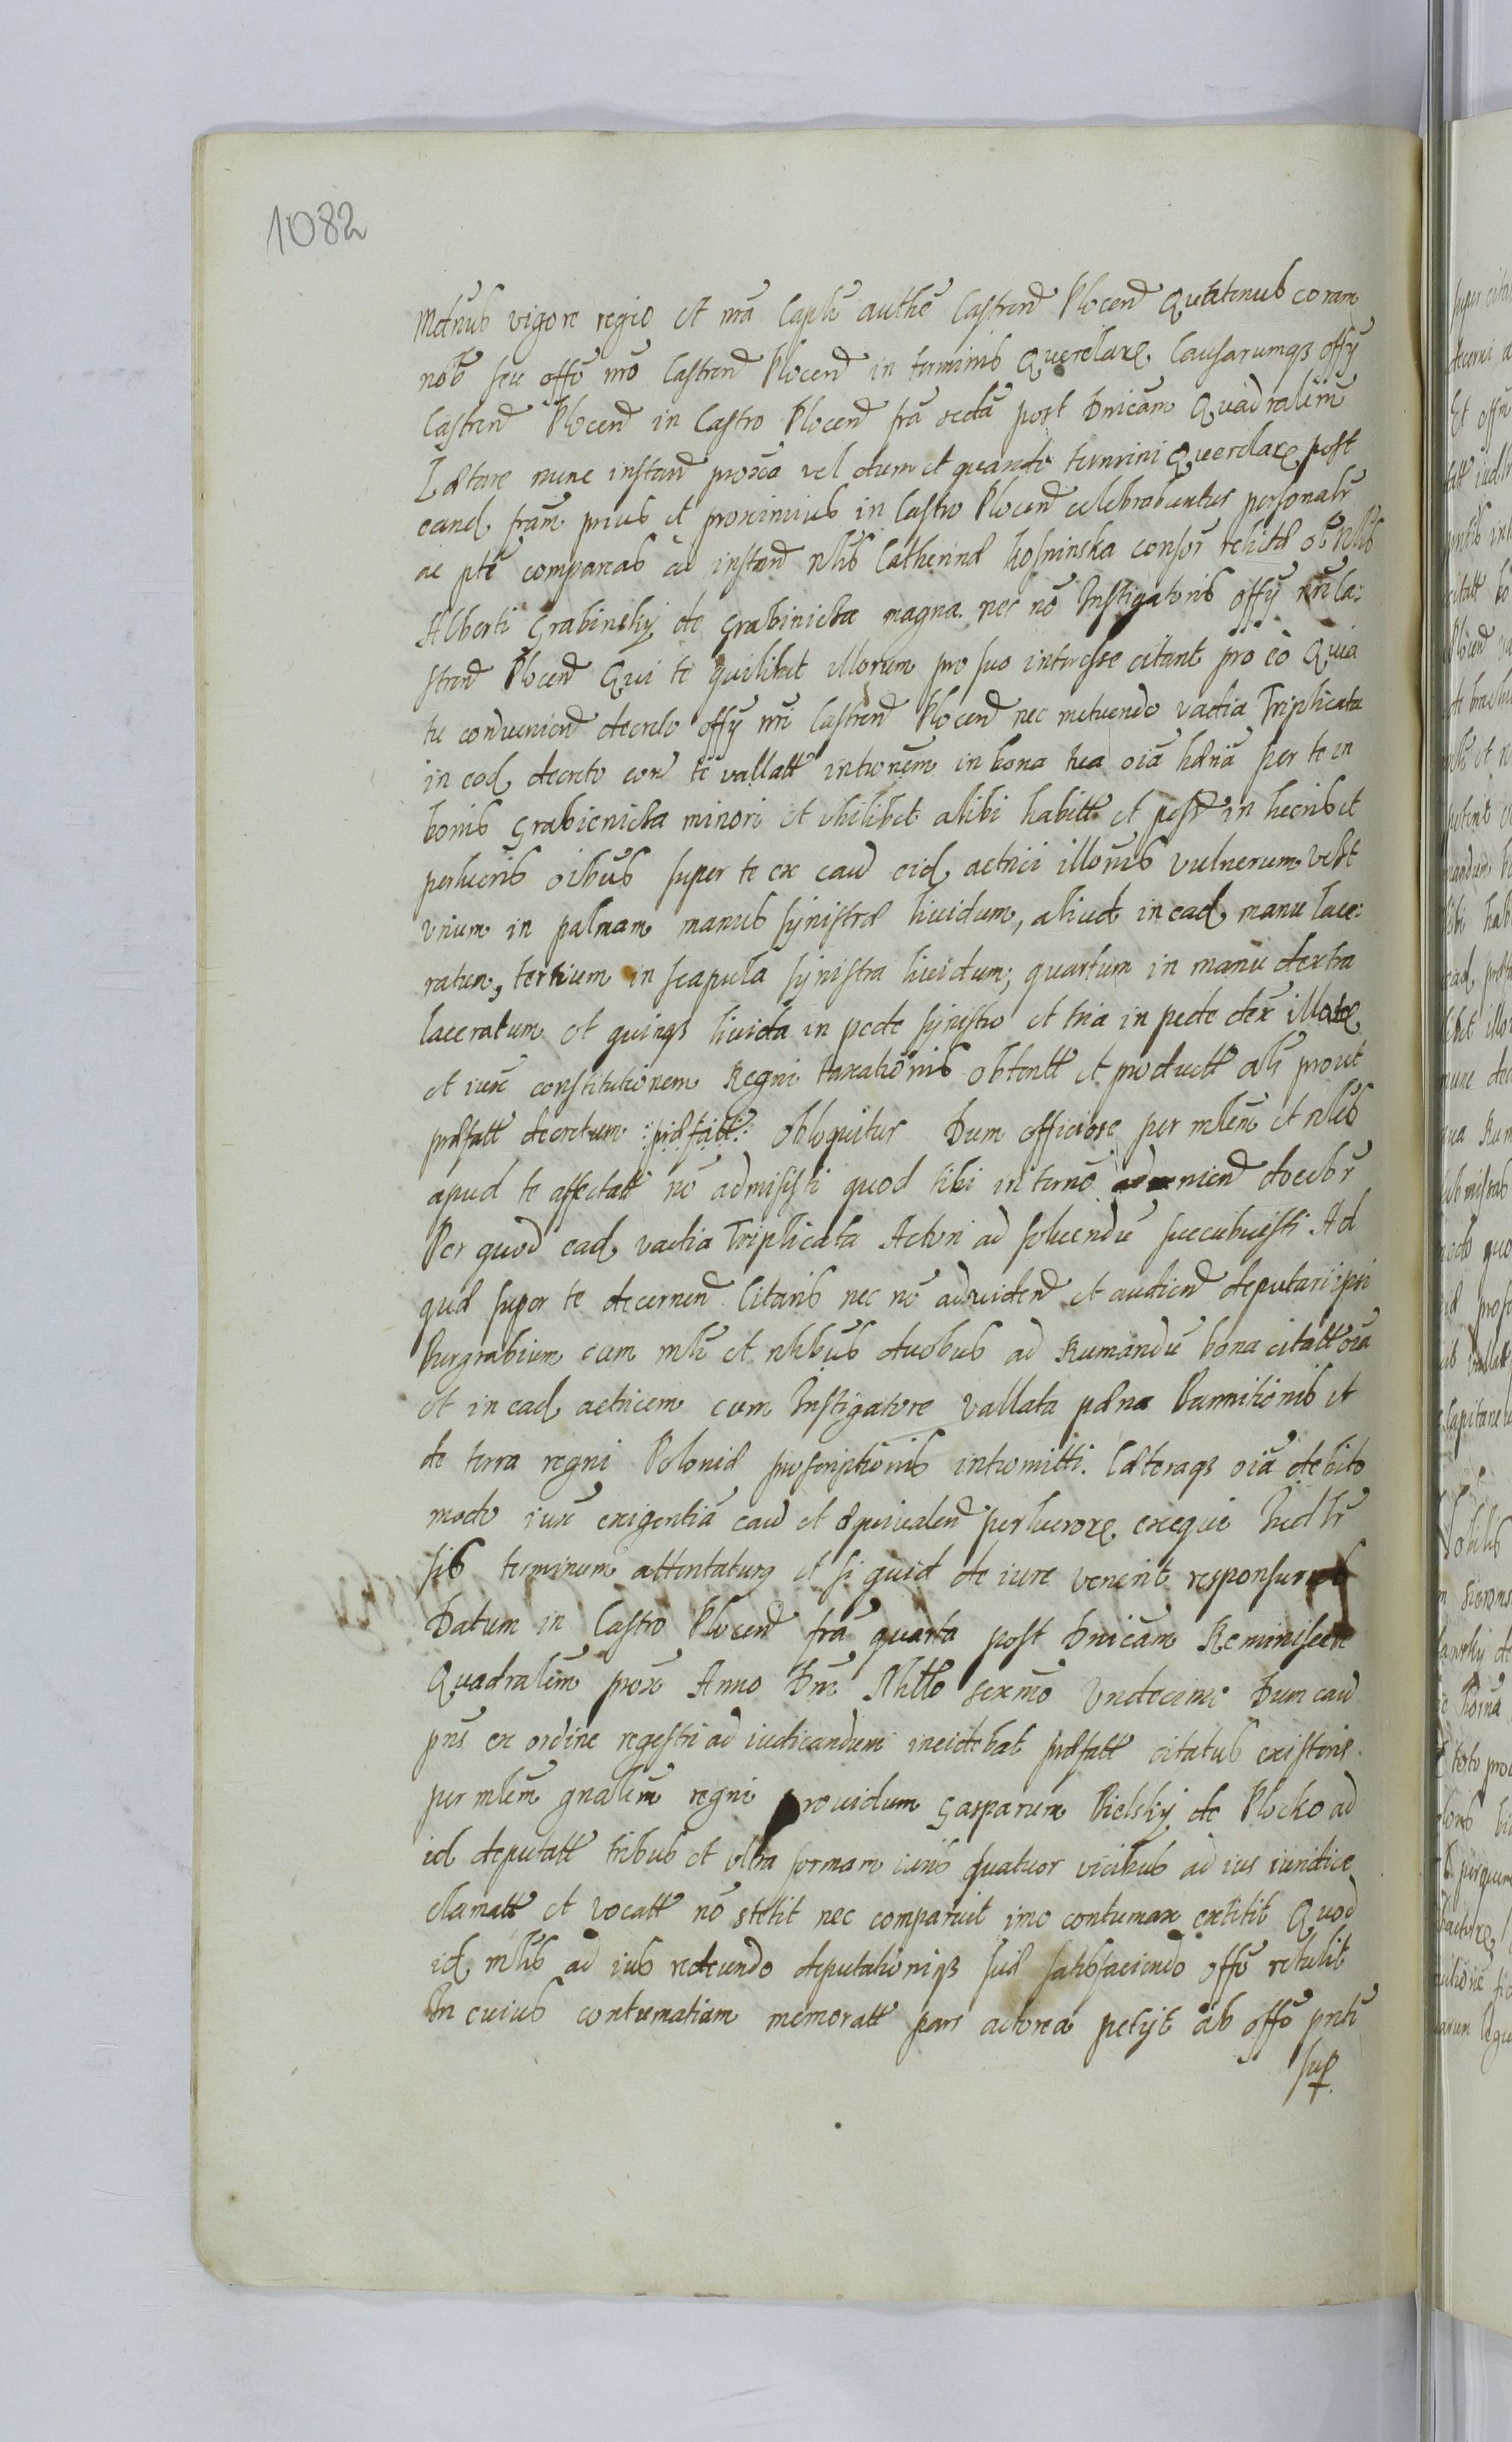 1082
Mdamus vigore regio et nrã Captli authẽ Castreñ Plocen̄ Quatenus coram
nob̃ seu offõ nrõ Castren̄ Plocen̄ in terminis Querelarꝝ Causarumqꝫ offÿ
Castren̄ Plocen̄ in Castro Plocen̄ frã scdã post Dnicam Quadralem̃
Lætare nunc instan̄ proxa vel dum et quando termini Querelarꝝ post
eand. frãm prius et proximius in Castro Plocen̄ celebrabuntur personalr̃
ac ptẽ compareas ad instan̄ Nlis Catherinæ Kosninska consor̃ relictæ ol̃ Nlis
Alberti Grabinsky de Grabinicka magna. nec nõ Instigatoris offÿ nri Ca:
stren̄ Plocen̄ Qui te quilibet illorum pro suo interesse citant pro eò Quia
tu conuenien̄ decreto offÿ nri Castren̄ Plocen̄ nec metuendo vadia Triplicata
in eod. decreto con̄ te vallatt intronem̃ in bona tua oĩa hæna per te in
bonis Grabienicka minori et ubilibet alibi habitt et poss̃ in hecris et
perlucris oĩbus super te ex cau̅ eid. actrici illonis vulnerum velt
vnum in palmam manus sÿnistræ liuidum, aliud in ead. manu lace:
ratum, tertium in scapula sÿnistra liuidum; quartum in manu dextra
laceratum et quinqꝫ liuida in pede sÿnistro et tria in pede dex̃ illatꝝ
et iux̃ constitutionem Regni taxationis obtentt et productt alr̃ prout
præfatt decretum :præfatt: obloquitur Dum officiose per mlem̃ et nles
apud te affectatt nõ admisisti quod tibi in termõ adueniend docebr̃
Per quod ead. vadia Triplicata Actori ad soluendũ succubuisti Ad
quæ super te decernen̄ Citaris nec nõ aduiden̄ et audien̄ deputari ipsi
Burgrabium cum mli et nlibus duobus ad Rumandũ bona citatt oia
et in ead. actricem cum Instigatore vallata pæna Bannitionis et
de terra regni Poloniæ proscriptionis intromitti. Cæteraqꝫ oĩa debito
modo iux̃ exigentiã cau̅ et Equiualen̄ perlucrorꝝ exequi Iudlr̃
sis terminum attentaturꝫ et si quid de iure venerit responsurus
Datum in Castro Plocen̄ frã quarta post Dnicam Reminiscere
Quadralem̃ prox̃ Anno Dni Millo sexmõ Vndecimo Dum cau̅
pns̃ ex ordine regestri ad iudicandum incidebat præfatt citatus existens
per mlem̃ gnalem̃ regni prouidum Gasparum Bielskÿ de Plocko ad
id deputatt tribus et vltra formam iuris quatuor vicibus ad ius iuridice
clamatt et vocatt nõ stetit nec comparuit imo contumax extitit Quod
id. mlis ad ius redeundo deputationiqꝫ suæ satisfaciendo offõ retulit
In cuius contumatiam memoratt pars actorea petÿt ab offõ pnti
sup.